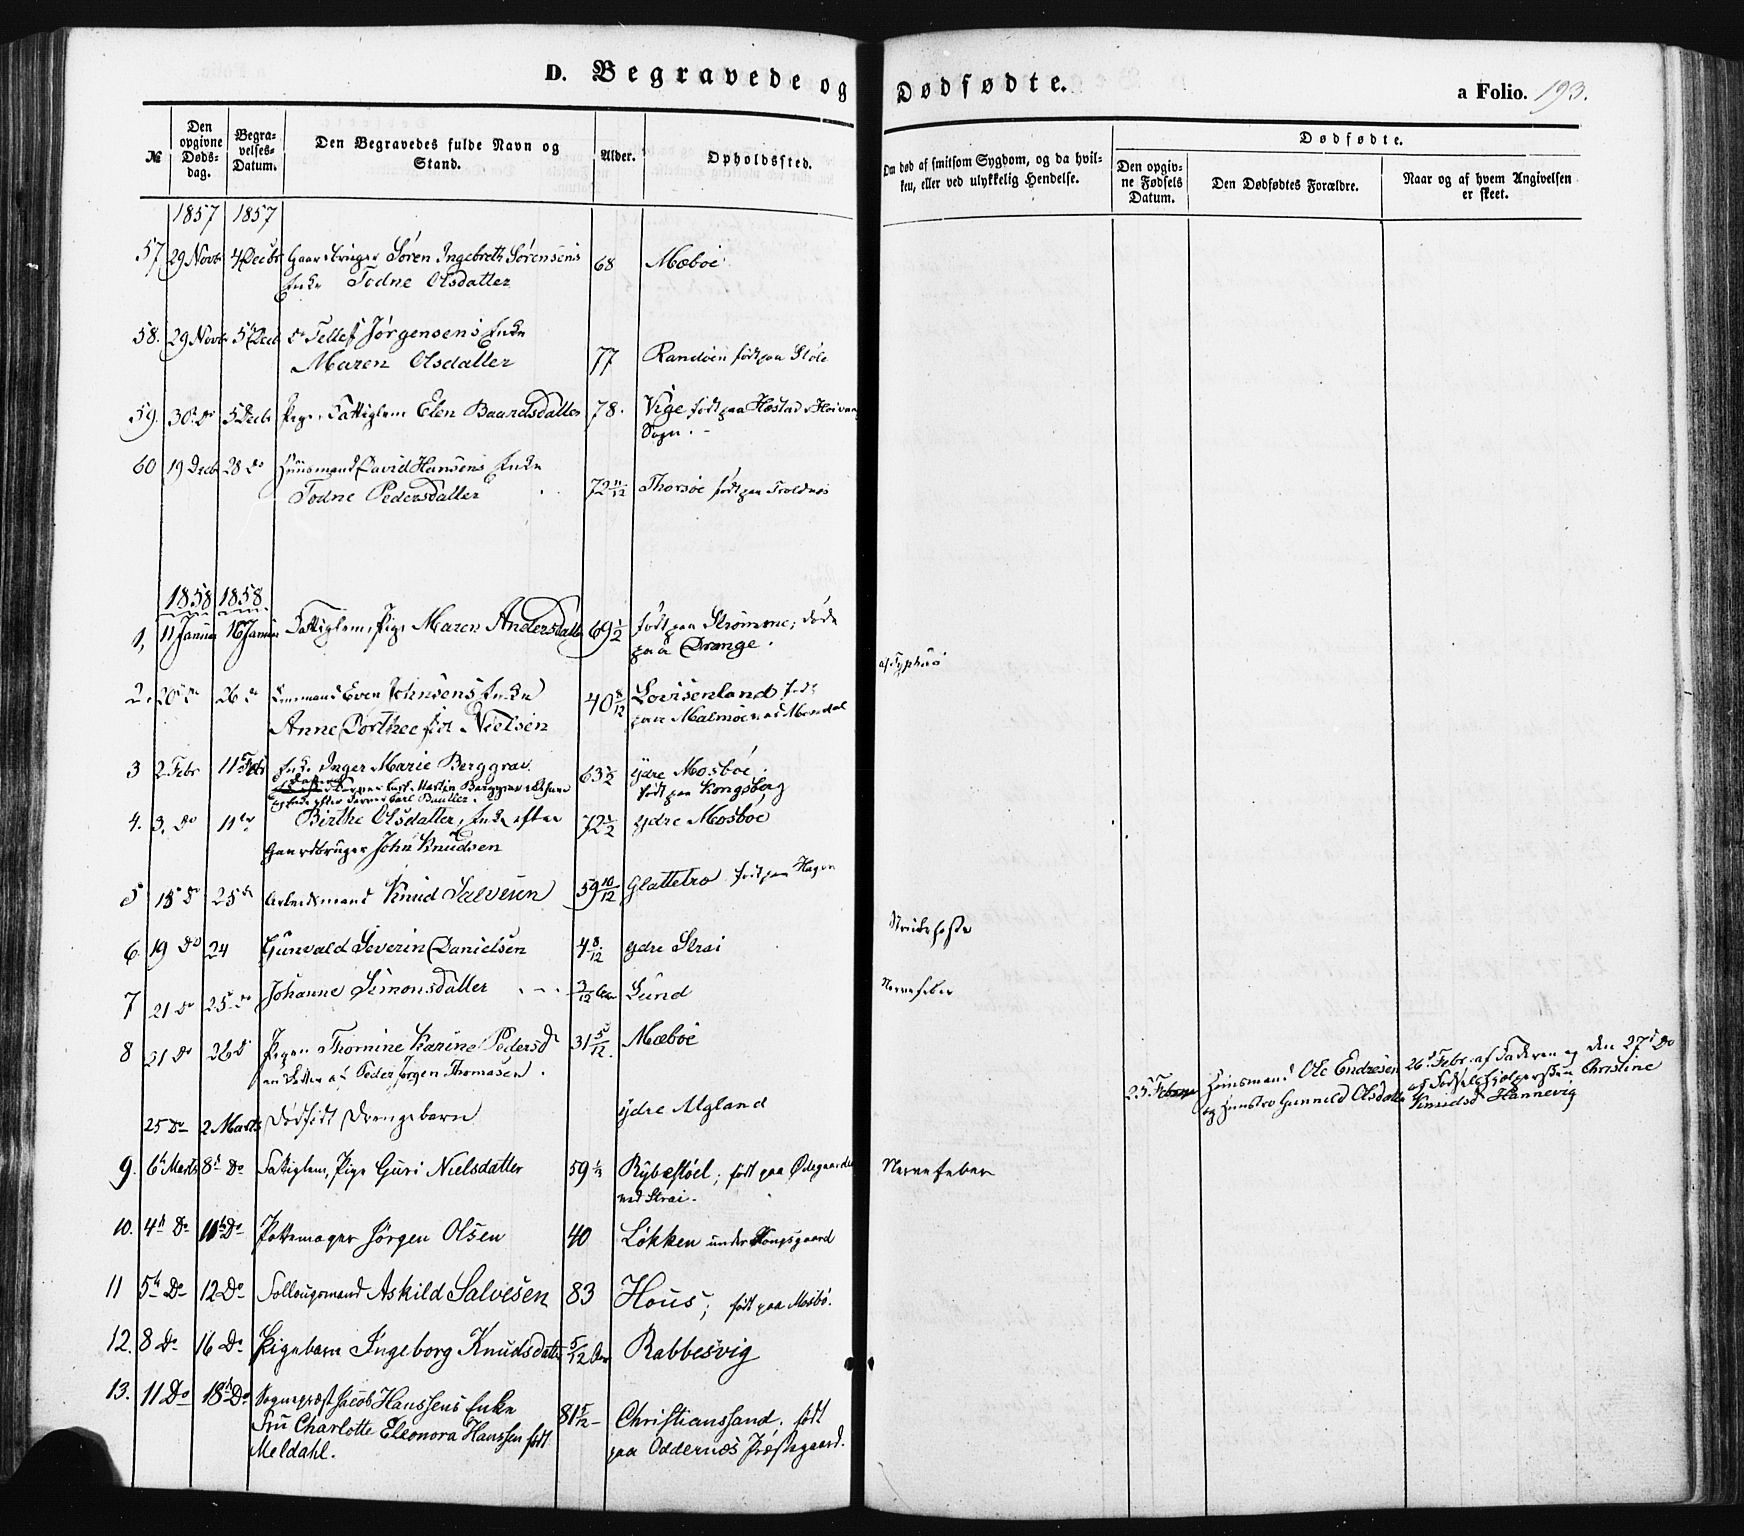 D. Begravede og Dødfødte.
a Folio. 193.
№
Den opgivne Døds-dag.
Begra-velses-Datum.
Den Begravedes fulde Navn og Stand.
Alder.
Opholdssted.
Om død af smitsom Sygdom, og da hvil-
ken, eller ved ulykkelig Hendelse.
Dødfødte.
Den opgiv-ne Fødsels Datum.
Den Dødfødtes Forældre.
Naar og af hvem Angivelsen er skeet.
1857 1857
57 29 Novbr 4 Decbr Gaardbruger Søren Ingebreth Sørensens 68 Mæboe
Enke Todne Olsdatter
58. 29 Novbr 5t Decb do Tellef Jørgensens Enke
Maren Olsdatter 77 Randøen født paa Støle
59. 30te Do 5 Decbr Pige, Fattiglem Elen Baardsdatter 78. Vige født paa Høstad
Sogn.
60 19 Decb 28 Do Huusmand David Hansens Enke
Todne Pedersdatter 72 11/12 Thorsøe født paa Troldnes
1858 1858
1, 11 Januar 16 Januar Fattiglem, Pige Maren Andersdatter 69 1/2 født paa Strømme; døde
paa Drange.
af Typhus
2. 20de Do 26 Do Even Johnsens Enke 40 8/12 Lovisenland født
Anne Dorthee født Nielsen paa Malmøe ved Mandal
3 2 Febr 11te Febr Enke Inger Marie Berggrav 63 ydre Mosboe.
født paa Kongsberg
4. 3. Do 11 Do Birthe Olsdatter, Enke efter 72 ydre Mosboe
Gaardbruger John Knudsen
5 18 Do 25 Do Arbeidsmand Knud Salvesen 59 10/12 Glattetre født paa Hagen
6. 19 Do 24 Gunvald Severin Danielsen 4 8/12 ydre Strai
7 21 Do 25 Do Johanne Simonsdatter 3/12 Aar Lund
Nervefeber
8 21 Do 26 Do Pigen Thomine Karine Pedersd 31 5/12. Mæboe
en Datter af Peder Jørgen Thomasen.
25 Do 2 Marts Dødfødt Drengebarn ydre Mgland
25 Februar Huusmand Ole Endresen
og Hustro Gunneld Olsdatter
26 Febr. af Faderen og den 27 Do
af Fødselshjælpersken Christine
Knudsd Hannevig
9. 6t Marts 8d Do Fattiglem, Pige Guri Nielsdatter 59 Rybestøel; født paa Ødegaarden
ved Strai.
Nervefeber
10. 4d Do 11t Do Pottemager Jørgen Olsen 40 Løkken under Kongsgaard
11 5t Do 12 Do Follougsmand Askild Salvesen 83 Hous; født paa Mosbø.
12. 8 Do 16 Do Pigebarn Ingeborg Knudsdatter 5/12 Aar Rabbesvig
13. 11 Do 18d Do Sognepræst Jacob Hanssens Enke
Fru Charlotte Eleonora Hanssen født 81 Christianssand. født
Meldahl. paa Oddernes Præstegaard.